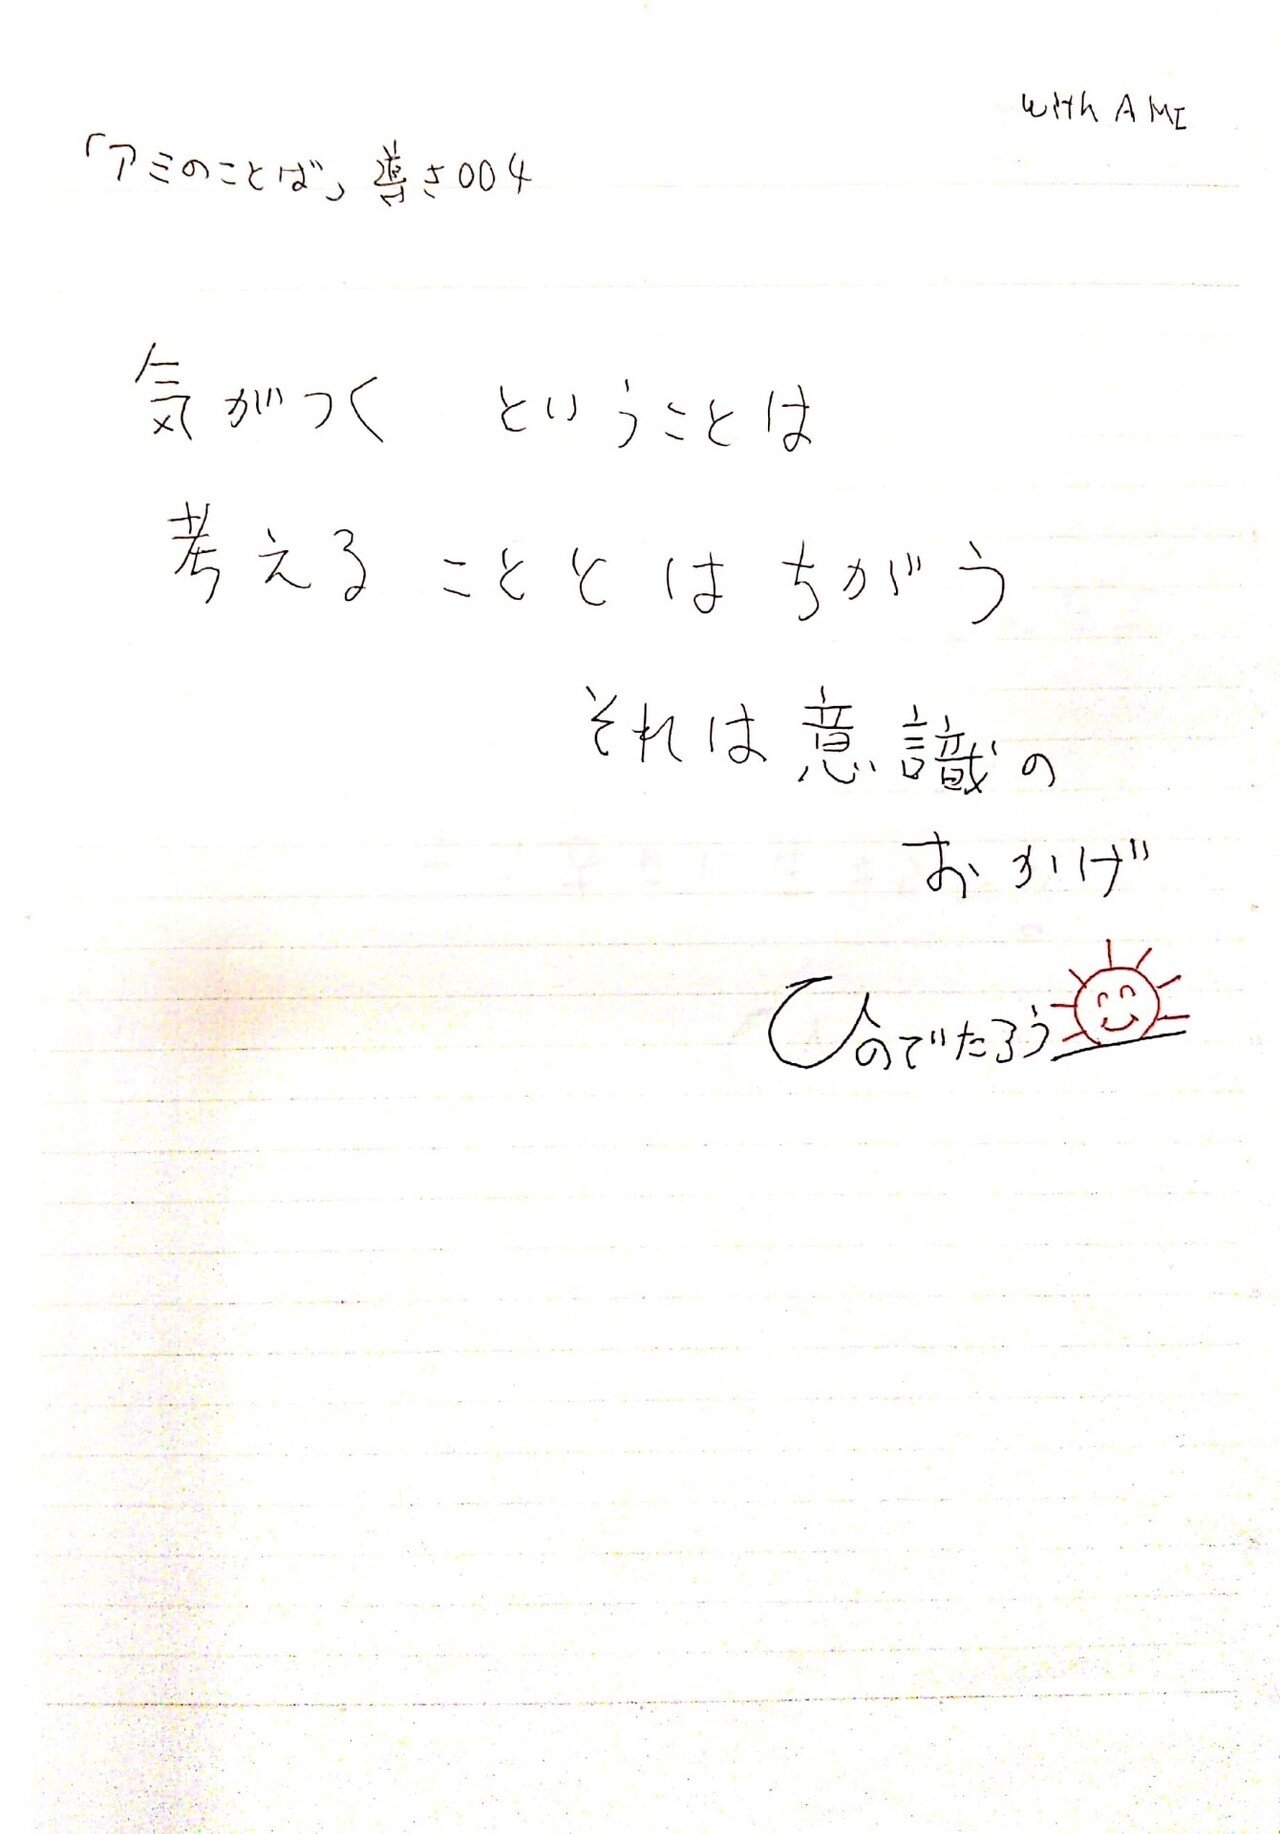 with AMI
「アミのことば」導き004
気がつく ということは
考えることとはちがう
それは意識の
おかげ
ひのでたろう